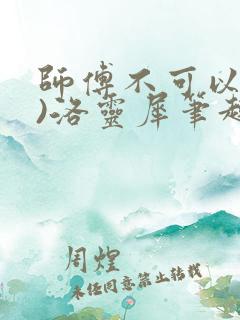 師傅不可以
)洛靈犀筆趣
周煌
未经同意禁止转载